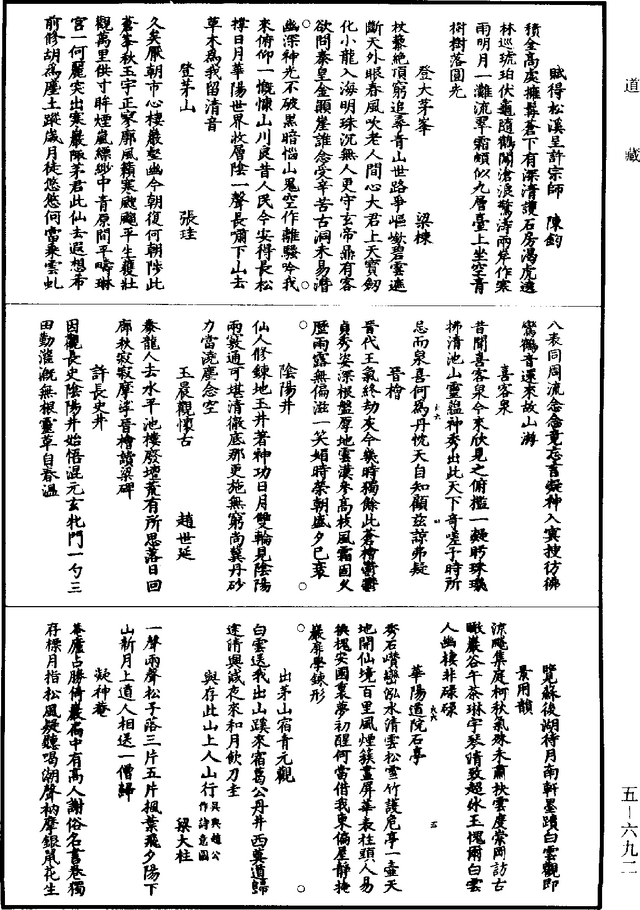 道藏
賦得松溪呈許宗師　陳鈞
積金高處擁髯蒼下有深清護石房渴虎遶
林巡琥珀伏龜隨鶴闖滄浪驚濤兩岸作寒
雨明月一灘流翠霜頗似九層臺上坐空青
樹樹落圓光
登大茅峯　梁棟
杖藜絕頂窮追尋青山世路爭嶇嶔碧雲遮
斷天外眼春風吹老人間心大君上天寶劒
化小龍入海明珠沉無人更守玄帝鼎有客
欲問秦皇金顛崖誰念受辛苦古洞未易潛
幽深神光不破黑暗惱山鬼空作離騷吟我
來俯仰一慨慷山川良昔人民今安得長松
撐日月華陽世界收層陰一聲長嘯下山去
草木為我留清音
登茅山　張珪
久矣厭朝市心棲巖壑幽今朝復何朝陟此
蒼峯秋玉宇正寥廓風籟寒颼颼平生獲壯
觀萬里供寸眸煙嵐縹緲中青原間平疇琳
宮一何麗突出寒巖陬茅君此仙去遐想希
前修胡為塵土蹤歲月徒悠悠何當乘雲虬
八表同周流念念竟忘言凝神入寞搜彷彿
鸞鶴音還來故山游
喜客泉
昔聞喜客泉今來欣見之俯檻一凝眄珠璣
拂清池山靈蘊神秀出此天下奇嗟子時所
忌而泉喜何為丹忱天自知顯茲諒弗疑
晉檜
晉代王氣終劫灰今幾時獨餘此蒼檜鬱鬱
貞秀姿深根盤厚地雲漢參高枝風霜固久
歷雨露無偏滋一笑媚時榮朝盛夕已衰
陰陽井
仙人修鍊地玉井若神功日月雙輪見陰陽
兩竅通可堪清徹底那更施無窮尚冀丹砂
力當澆塵念空
玉晨觀懷古　趙世延
秦龍人去水平池樓廢壇荒有所思落日回
廊秋寂寂摩挲晉檜讀梁碑
許長史井
因觀長史陰陽井始悟混元玄牝門一勺三
田勤灌溉無根靈草自春溫
覽蘇後湖待月南軒墨蹟白雲觀即
景用韻
涼颸集庭柯秋氣殊未肅扶雲度崇岡訪古
瞰巖谷午茶琳宇琴清致超水玉愧爾白雲
人幽棲非碌碌
華陽道院石亭
秀石嶙巒泓水清雲松雪竹護危亭一壺天
地開仙境百里風煙簇畫屏華表柱頭人易
換槐安國裏夢初醒何當借我東偏屋靜掩
巖扉學鍊形
出茅山宿青元觀
白雲送我出山蹊來宿葛公丹井西莫道歸
途清興減夜來和月飲刀圭
與存此山上人山行吳興趙公作詩意圖　梁大柱
一聲兩聲松子落三片五片楓葉飛夕陽下
山新月上道人相送一僧歸
凝神菴
菴廬占勝倚巖扃中有高人謝俗名書卷獨
存標月指松風疑聽喝潮聲衲摩銀鼠花生
五—六九二